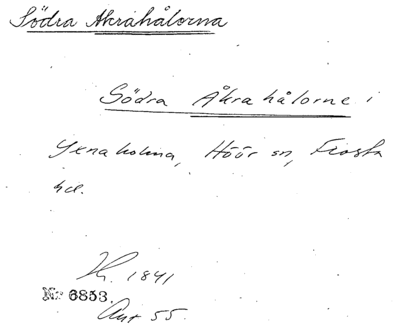 Södra Åkrahålorna
Södra Åkrahålorne i
Yxnaholma, Höör sn, Frosta
hd.
1841
No 6853.
Akt 55.